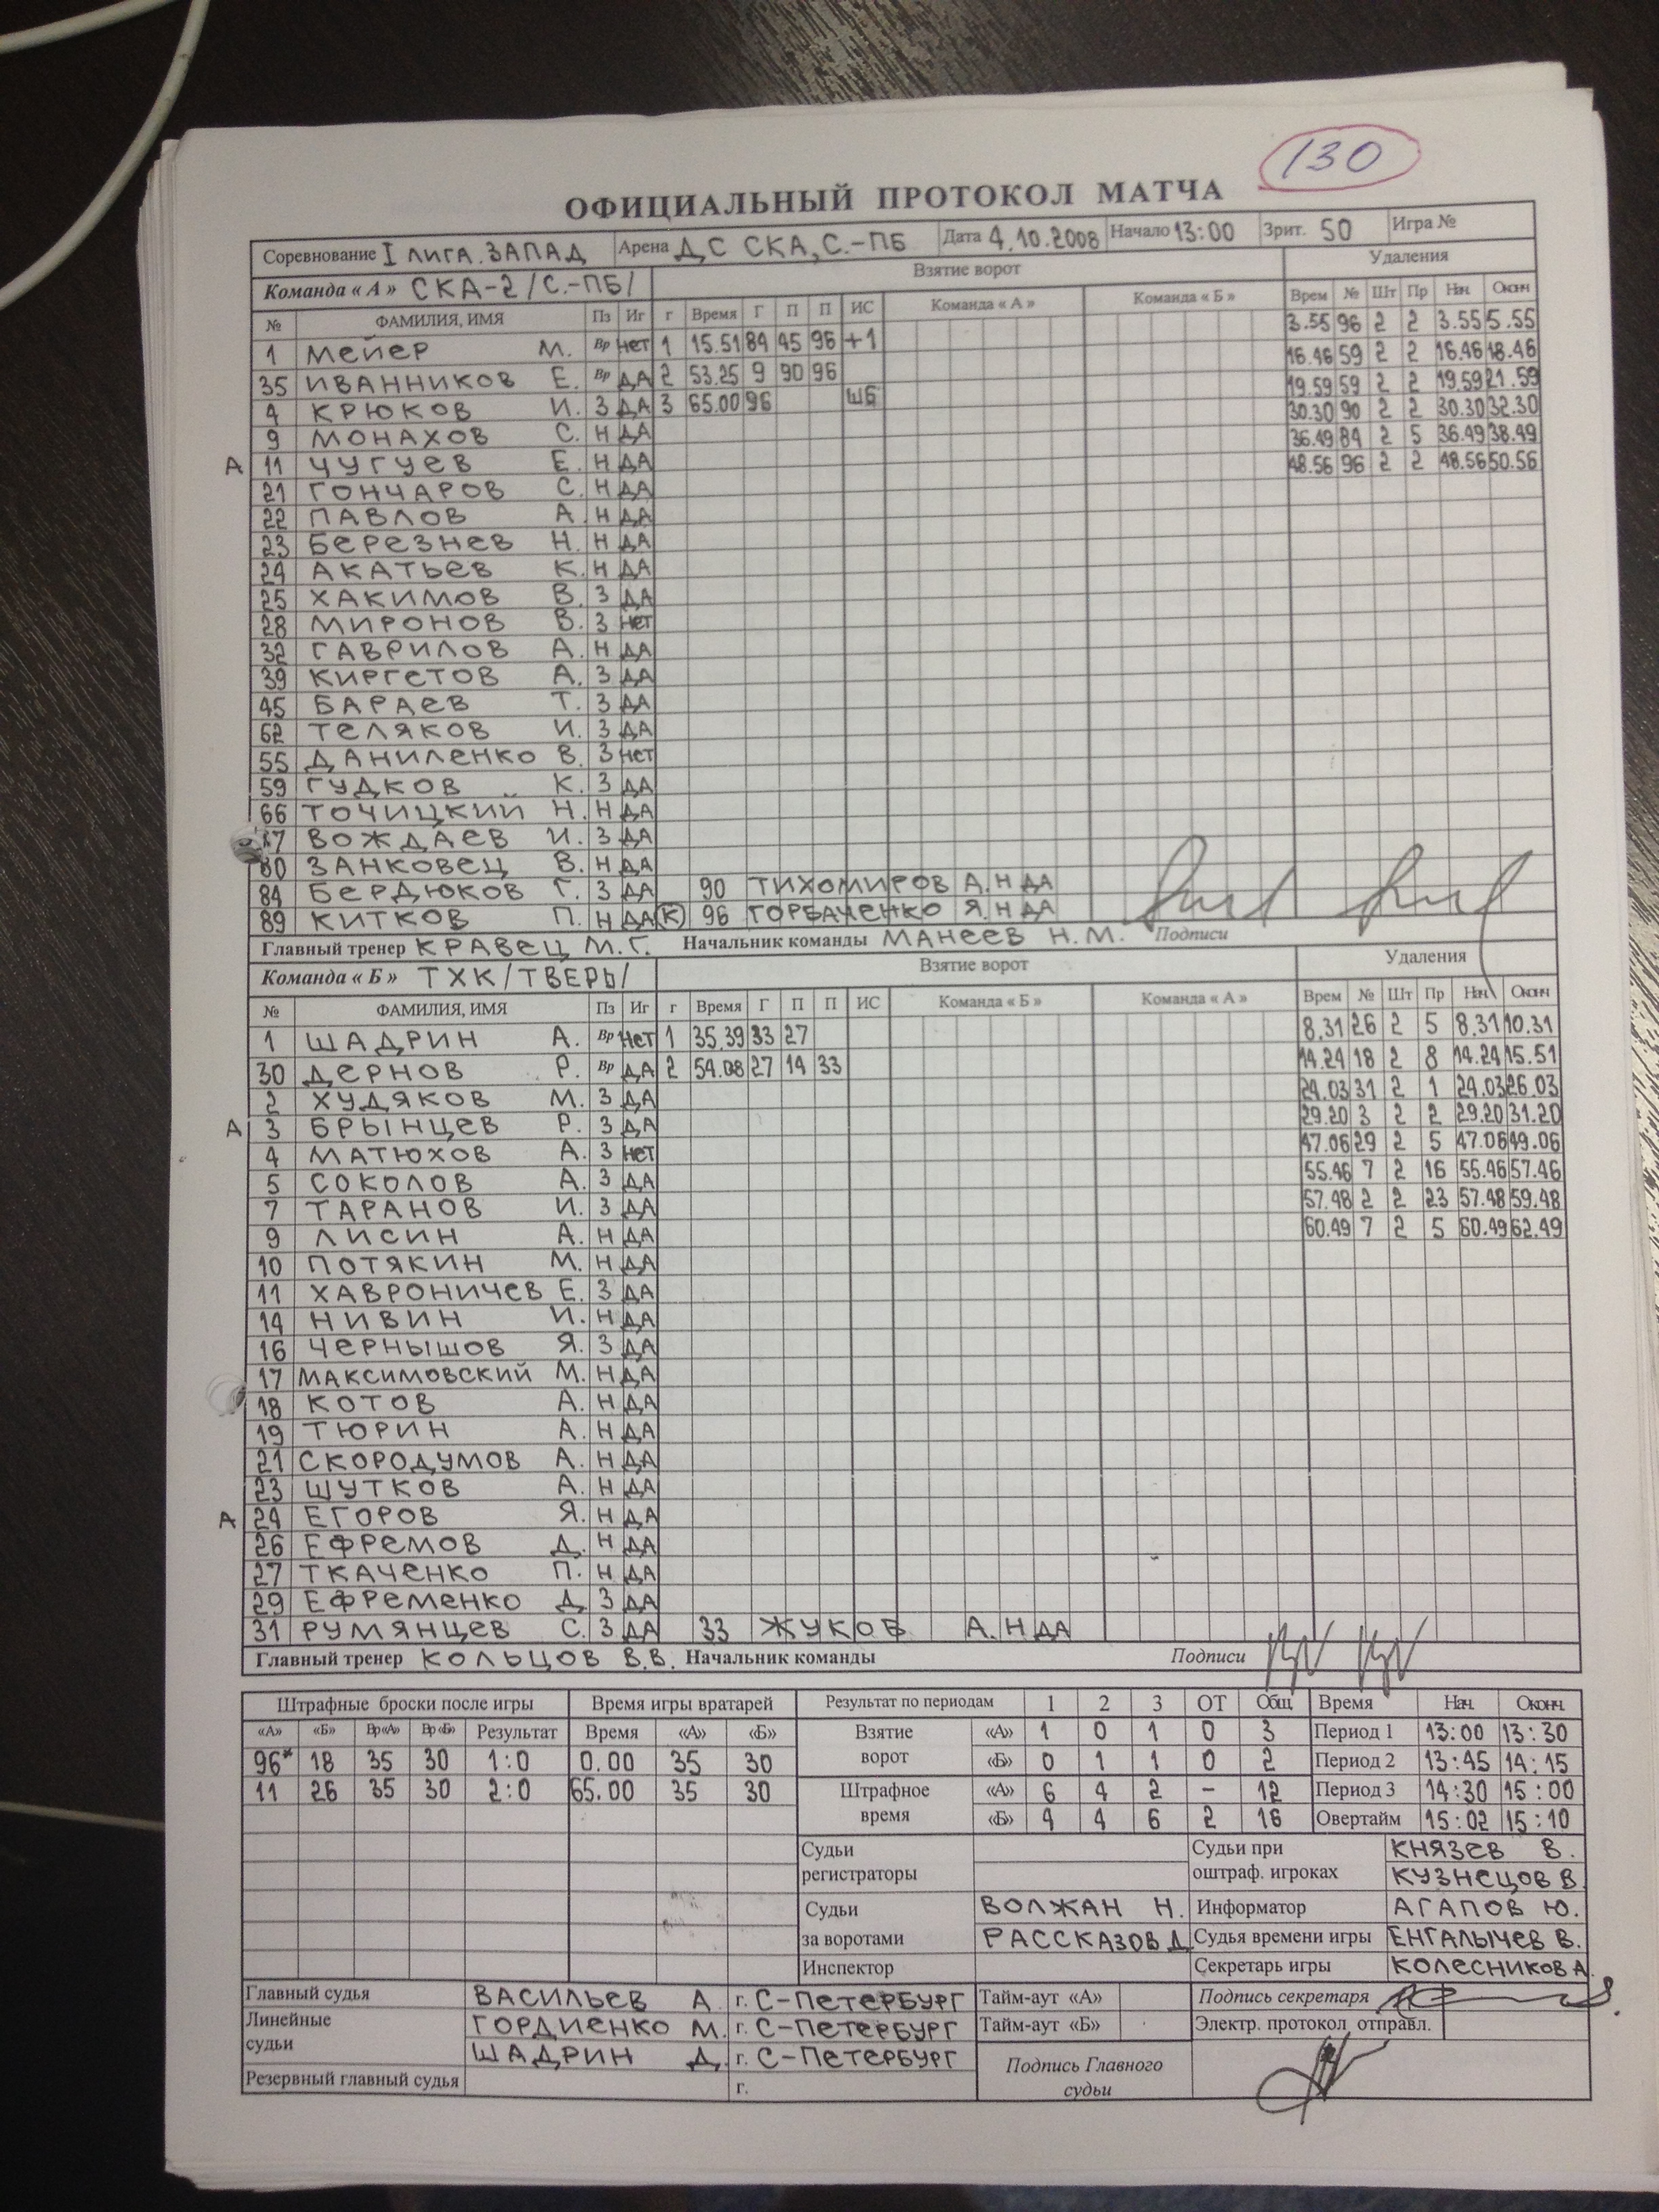 130
ОФИЦИАЛЬНЫЙ ПРОТОКОЛ МАТЧА
Соревнование I ЛИГА. ЗАПАД Арена ДС СКА, С.-ПБ Дата 4.10.2008 Начало 13:00 Зрит. 50 Игра №
Команда « А » СКА-2 /С.-ПБ/ Взятие ворот Удаления
№ ФАМИЛИЯ, ИМЯ Пз Иг г Время Г П П ИС Команда « А » Команда « Б » Врем № Шт Пр Нач. Оконч
1 МЕЙЕР М. Вр НЕТ 1 15.51 84 45 96 +1 3.55 96 2 2 3.55 5.55
35 ИВАННИКОВ Е. Вр ДА 2 53.25 9 90 96 16.46 59 2 2 16.46 18.46
4 КРЮКОВ И. З ДА 3 65.00 96 ШБ 19.59 59 2 2 19.59 21.59
9 МОНАХОВ С. Н ДА 30.30 90 2 2 30.30 32.30
А 11 ЧУГУЕВ Е. Н ДА 36.49 84 2 5 36.49 38.49
21 ГОНЧАРОВ С. Н ДА 48.56 96 2 2 48.56 50.56
22 ПАВЛОВ А. Н ДА
23 БЕРЕЗНЕВ Н. Н ДА
24 АКАТЬЕВ К. Н ДА
25 ХАКИМОВ В. З ДА
28 МИРОНОВ В. З НЕТ
32 ГАВРИЛОВ А. Н ДА
39 КИРГЕТОВ А. З ДА
45 БАРАЕВ Т. З ДА
62 ТЕЛЯКОВ И. З ДА
55 ДАНИЛЕНКО В. З НЕТ
59 ГУДКОВ К. З ДА
66 ТОЧИЦКИЙ Н. Н ДА
ВОЖДАЕВ И. З ДА
80 ЗАНКОВЕЦ В. Н ДА
84 БЕРДЮКОВ Г. З ДА 90 ТИХОМИРОВ А. Н ДА
89 КИТКОВ П. Н ДА (К) 96 ГОРБАЧЕНКО Я. Н ДА
Главный тренер КРАВЕЦ М.Г. Начальник команды МАНЕЕВ Н.М. Подписи
Команда « Б » ТХК /ТВЕРЬ/ Взятие ворот Удаления
№ ФАМИЛИЯ, ИМЯ Пз Иг г Время Г П П ИС Команда « Б » Команда « А » Врем № Шт Пр Нач. Оконч
1 ШАДРИН А. Вр НЕТ 1 35.39 33 27 8.31 26 2 5 8.31 10.31
30 ДЕРНОВ Р. Вр ДА 2 54.08 27 14 33 14.24 18 2 8 14.24 15.51
2 ХУДЯКОВ М. З ДА 24.03 31 2 1 24.03 26.03
А 3 БРЫНЦЕВ Р. З ДА 29.20 3 2 2 29.20 31.20
4 МАТЮХОВ А. З НЕТ 47.06 29 2 5 47.06 49.06
5 СОКОЛОВ А. З ДА 55.46 7 2 16 55.46 57.46
7 ТАРАНОВ И. З ДА 57.48 2 2 23 57.48 59.48
9 ЛИСИН А. Н ДА 60.49 7 2 5 60.49 62.49
10 ПОТЯКИН М. Н ДА
11 ХАВРОНИЧЕВ Е. З ДА
14 НИВИН И. Н ДА
16 ЧЕРНЫШОВ Я. З ДА
17 МАКСИМОВСКИЙ М. Н ДА
18 КОТОВ А. Н ДА
19 ТЮРИН А. Н ДА
21 СКОРОДУМОВ А. Н ДА
23 ШУТКОВ А. Н ДА
А 24 ЕГОРОВ Я. Н ДА
26 ЕФРЕМОВ Д. Н ДА
27 ТКАЧЕНКО П. Н ДА
29 ЕФРЕМЕНКО Д. З ДА
31 РУМЯНЦЕВ С. З ДА 33 ЖУКОВ А. Н ДА
Главный тренер КОЛЬЦОВ В.В. Начальник команды Подписи
Штрафные броски после игры Время игры вратарей Результат по периодам 1 2 3 ОТ Общ Время Нач. Оконч.
«А» «Б» Вр«А» Вр «Б» Результат Время «А» «Б» Взятие ворот «А» 1 0 1 0 3 Период 1 13:00 13:30
96* 18 35 30 1:0 0.00 35 30 «Б» 0 1 1 0 2 Период 2 13:45 14:15
11 26 35 30 2:0 65.00 35 30 Штрафное время «А» 6 4 2 - 12 Период 3 14:30 15:00
«Б» 4 4 6 2 16 Овертайм 15:02 15:10
Судьи регистраторы Судьи при оштраф. игроках КНЯЗЕВ В.
КУЗНЕЦОВ В.
Судьи за воротами ВОЛЖАН Н. Информатор АГАПОВ Ю.
РАССКАЗОВ Д. Судья времени игры ЕНГАЛЫЧЕВ В.
Инспектор Секретарь игры КОЛЕСНИКОВ А.
Главный судья ВАСИЛЬЕВ А. г. С-ПЕТЕРБУРГ Тайм-аут «А» Подпись секретаря
Линейные судьи ГОРДИЕНКО М. г. С-ПЕТЕРБУРГ Тайм-аут «Б» Электр. протокол отправл.
ШАДРИН Д. г. С-ПЕТЕРБУРГ Подпись Главного судьи
Резервный главный судья г.